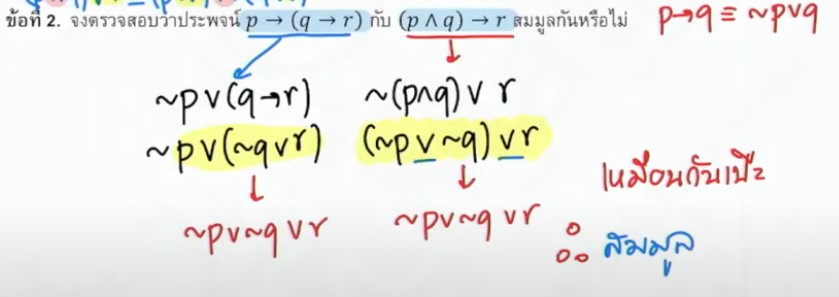 ข้อที่ 2. จงตรวจสอบว่าประพจน์ p → (q → r) กับ (p ∧ q) → r สมมูลกันหรือไม่ p→q ≡ ~p∨q
~p∨(q→r) ~(p∧q)∨ r
~p∨(~q∨r) (~p∨~q)∨r
~p∨~q∨r ~p∨~q∨r
เหมือนกันเป๊ะ
∴ สมมูล